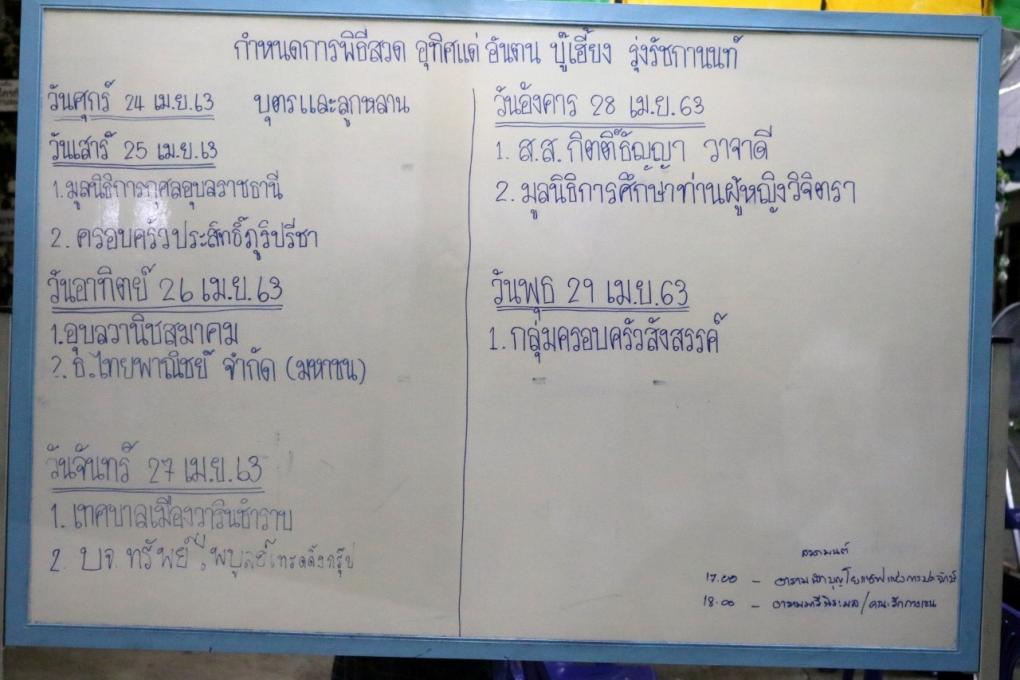 กำหนดการพิธีสวด อุทิศแด่ อันตน บู๊เฮี้ยง รุ่งรัชกานนท์
วันศุกร์ 24 เม.ย.63 บุตรและลูกหลาน
วันเสาร์ 25 เม.ย.63
1.มูลนิธิการกุศลอุบลราชธานี
2. ครอบครัวประสิทธิ์ภูริปรีชา
วันอาทิตย์ 26 เม.ย.63
1.อุบลวานิชสมาคม
2. ธ.ไทยพาณิชย์ จำกัด (มหาชน)
วันจันทร์ 27 เม.ย.63
1. เทศบาลเมืองวารินชำราบ
2. บจ. ทรัพย์ พิบูลย์เทรดดิ้งกรุ๊ป
วันอังคาร 28 เม.ย.63
1. ส.ส. กิตติ์ธัญญา วาจาดี
2. มูลนิธิการศึกษาท่านผู้หญิงวิจิตรา
วันพุธ 29 เม.ย.63
1. กลุ่มครอบครัวสังสรรค์
สวดมนต์
17.00 -
18.00 -